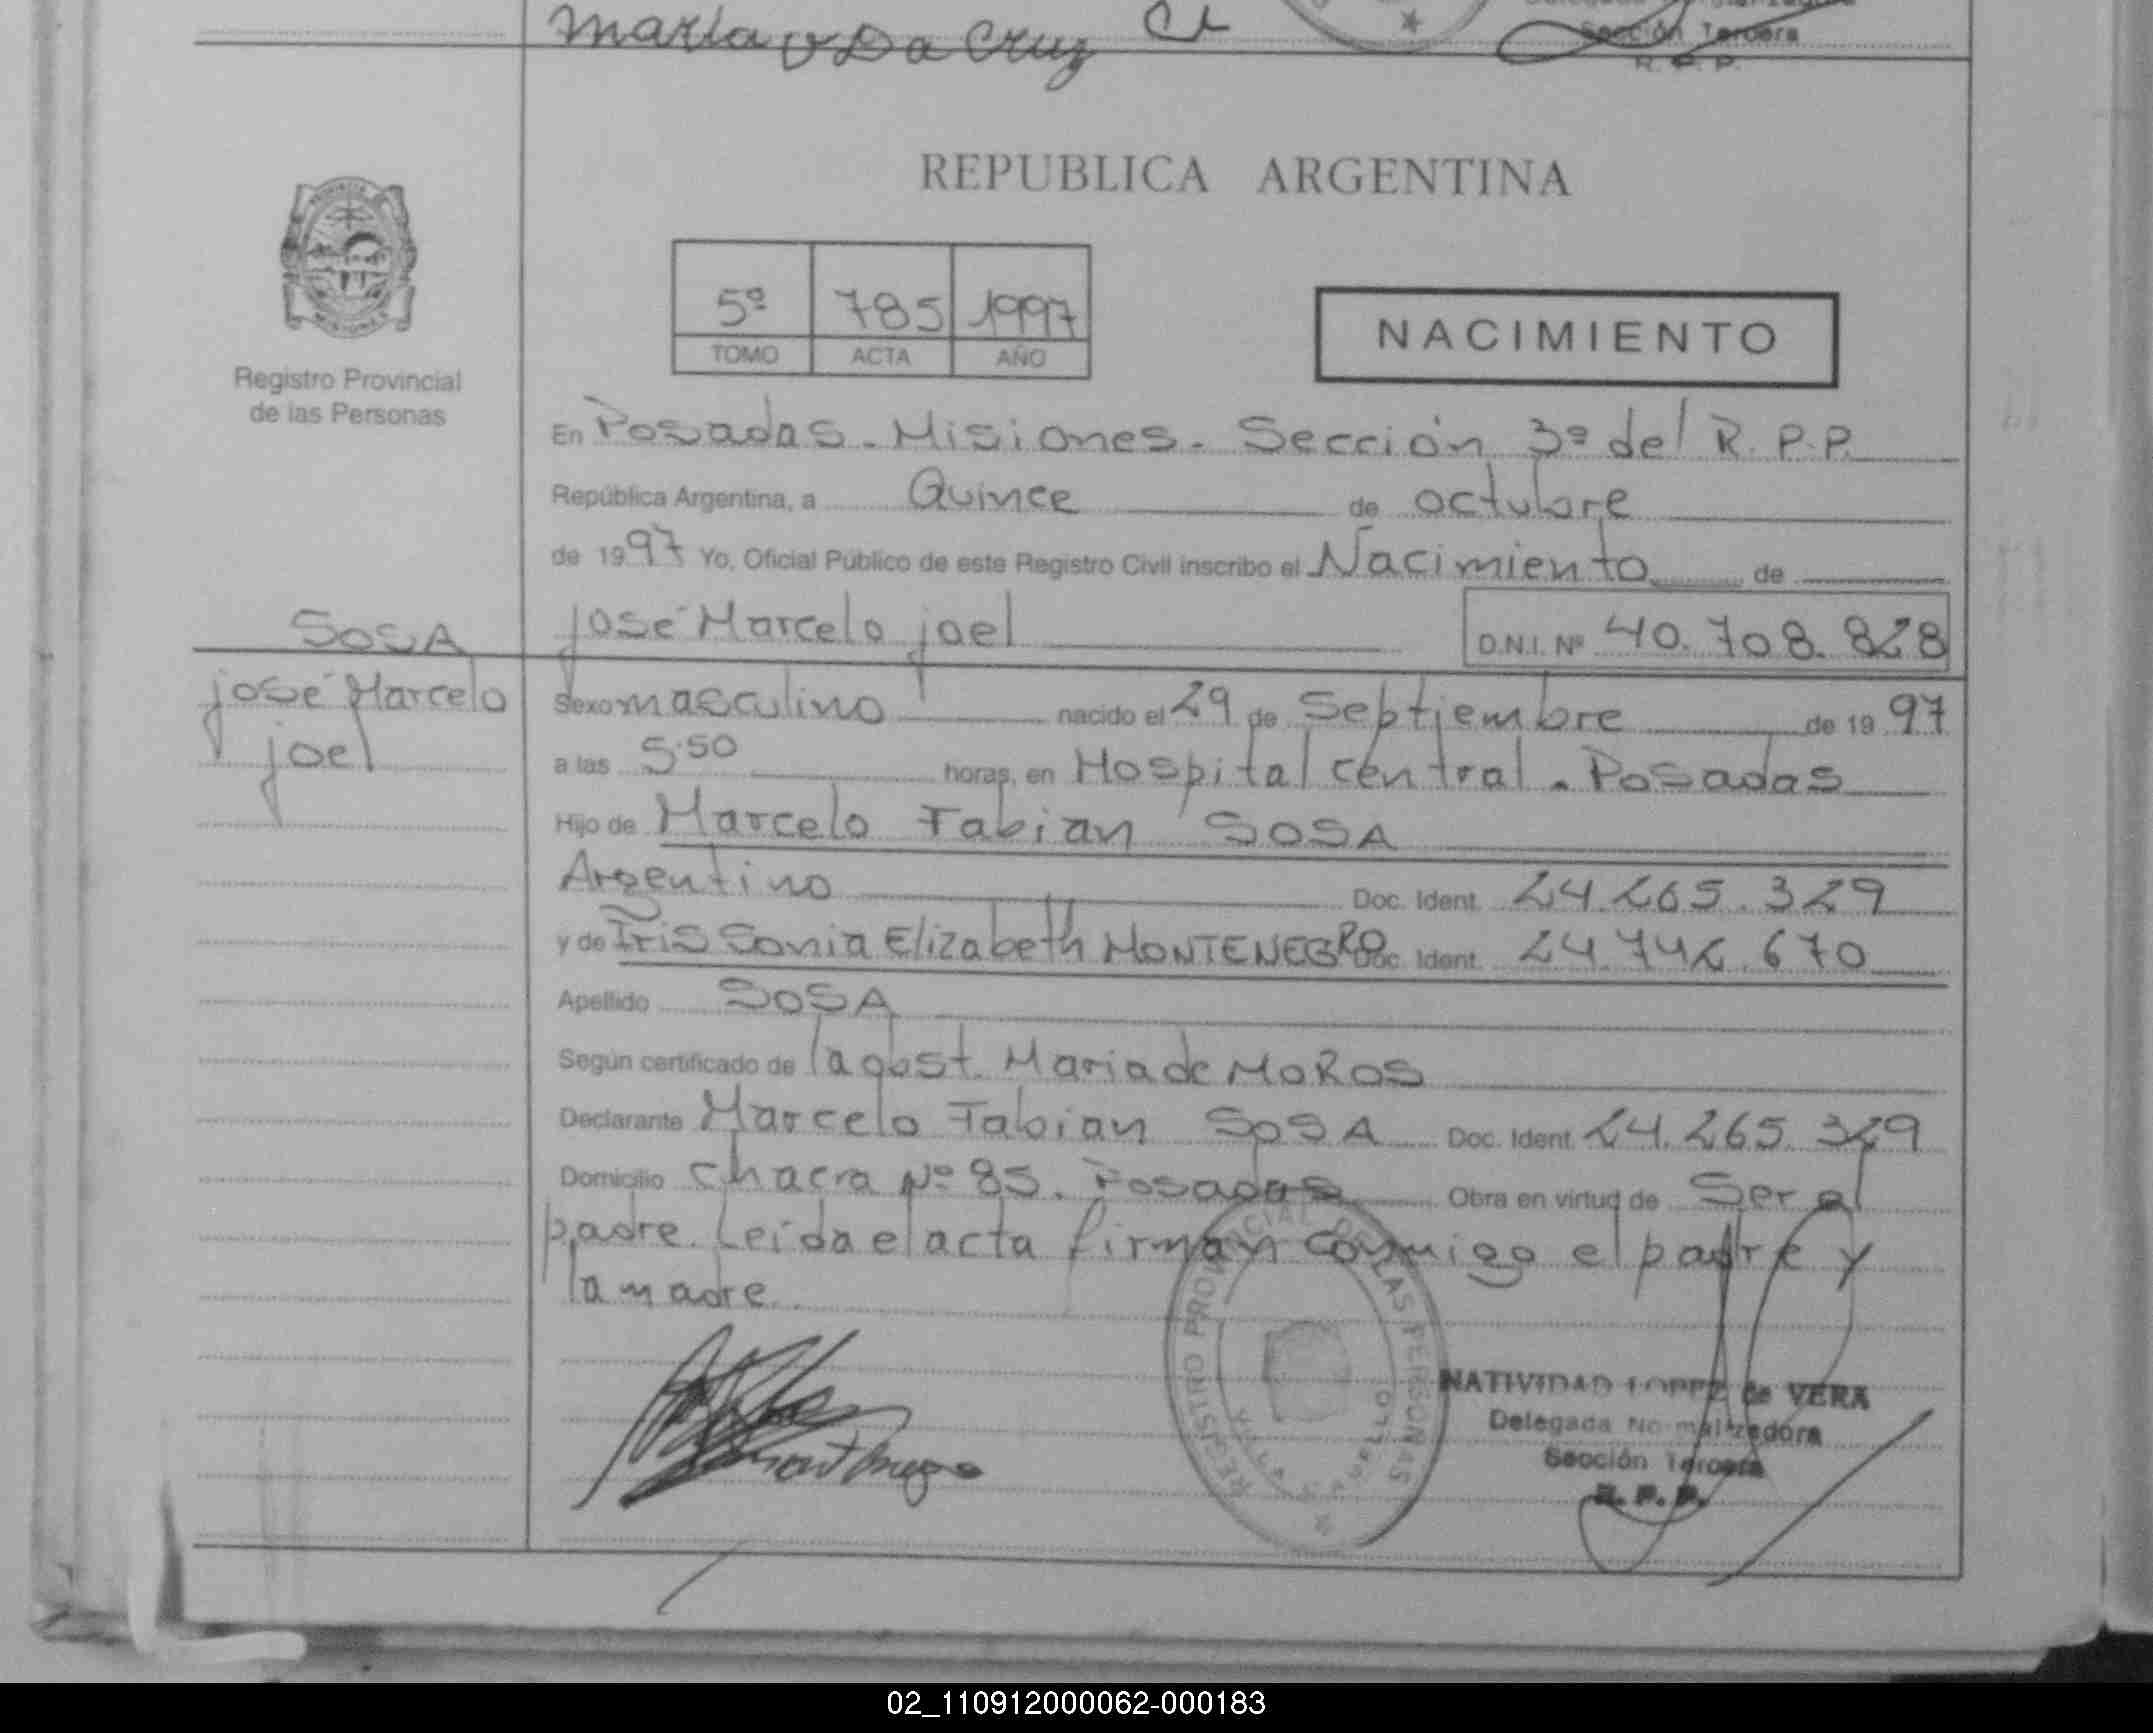 Maria v Da Cruz
Sección Tercera
R. P. P.
REPUBLICA ARGENTINA
5º 785 1997
TOMO ACTA AÑO
NACIMIENTO
Registro Provincial
de las Personas
En Posadas - Misiones - Sección 3º del R. P. P.
República Argentina, a Quince de octubre
de 1997 Yo, Oficial Público de este Registro Civil inscribo el Nacimiento de
SOSA
josé Marcelo joel
josé Marcelo joel D.N.I. Nº 40.708.828
Sexo masculino nacido el 29 de Septiembre de 1997
a las 5.50 horas, en Hospital central - Posadas
Hijo de Marcelo Fabian SOSA
Argentino Doc. Ident. 24.265.329
y de Iris Sonia Elizabeth MONTENEGRO Doc. Ident. 24.742.670
Apellido SOSA
Según certificado de la obst. Maria de MOROS
Declarante Marcelo Fabian SOSA Doc. Ident. 24.265.329
Domicilio chacra Nº 85. Posadas Obra en virtud de Ser el
padre. Leída el acta firman conmigo el padre y
la madre.
REGISTRO PROVINCIAL DE LAS PERSONAS
NATIVIDAD LOPEZ de VERA
Delegada Normalizadora
Sección Tercera
R. P. P.
02_110912000062-000183